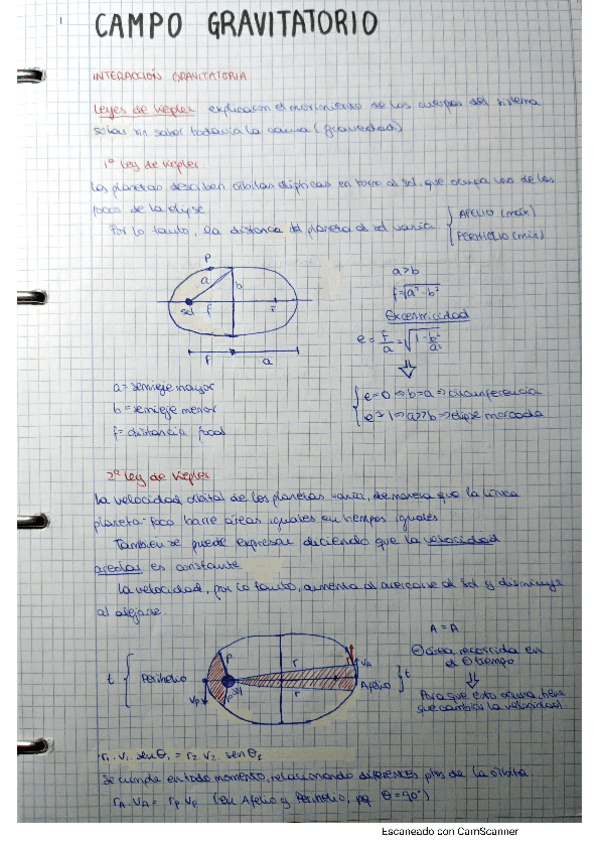 CAMPO GRAVITATORIO
INTERACCIÓN GRAVITATORIA
Leyes de Kepler explicaron el movimiento de los cuerpos del sistema
solar sin saber todavía la causa (gravedad)
1º Ley de Kepler
Los planetas describen órbitas elípticas en torno al sol, que ocupa uno de los
focos de la elipse
Por lo tanto, la distancia del planeta al sol varía
APELIO (máx)
PERIHELIO (min)
P
a
b
sol
f
f
a
a>b
f=√a²-b²
Excentricidad
e = f/a = √1-b²/a²
e=0 ⇒ b=a ⇒ circunferencia
e≈1 ⇒ a>>b ⇒ elipse marcada
a = semieje mayor
b = semieje menor
f = distancia focal
2º Ley de Kepler
La velocidad orbital de los planetas varía, de manera que la línea
planeta-foco barre áreas iguales en tiempos iguales
También se puede expresar diciendo que la velocidad
areolar es constante
La velocidad, por lo tanto, aumenta al acercarse al sol y disminuye
al alejarse.
A = A
área recorrida en
el tiempo
Para que esto ocurra, tiene
que cambiar la velocidad
t
Perihelio
Vp
P
P
sol
r
r
VA
Afelio
t
r₁ . v₁ senθ₁ = r₂ v₂ senθ₂
Se cumple en todo momento, relacionando diferentes ptos de la órbita
rA . VA = rP . VP (en Afelio y Perihelio, pq θ=90°)
Escaneado con CamScanner